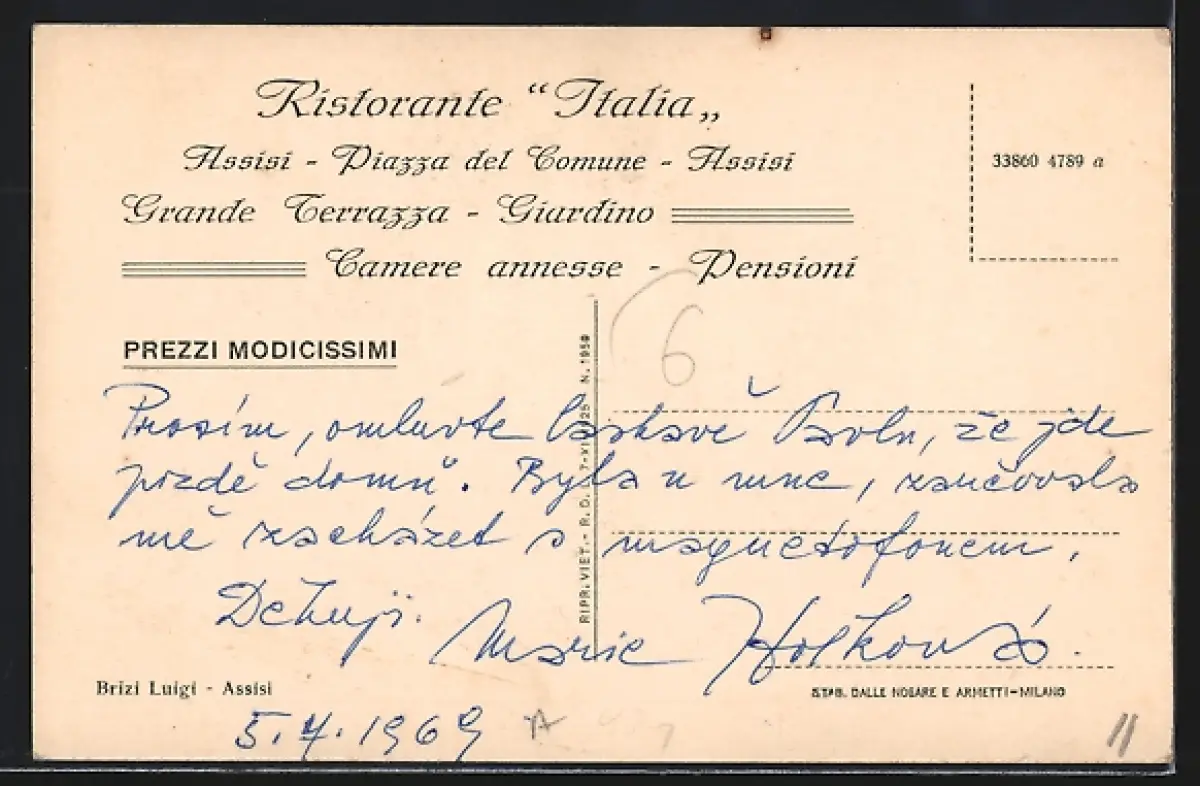 Ristorante “Italia„
Assisi - Piazza del Comune - Assisi
33860 4789 a
Grande Terrazza - Giardino
Camere annesse - Pensioni
6
PREZZI MODICISSIMI
RIPR. VIET. - R. D. 7-VI-925 N. 1950
Prosím, omluvte laskavě Pavlu, že jde
pozdě domů. Byla u mne, zaučovala
mě zacházet s magnetofonem.
Děkuji. Marie
Brizi Luigi - Assisi
STAB. DALLE NOGARE E ARMETTI-MILANO
5.4.1969